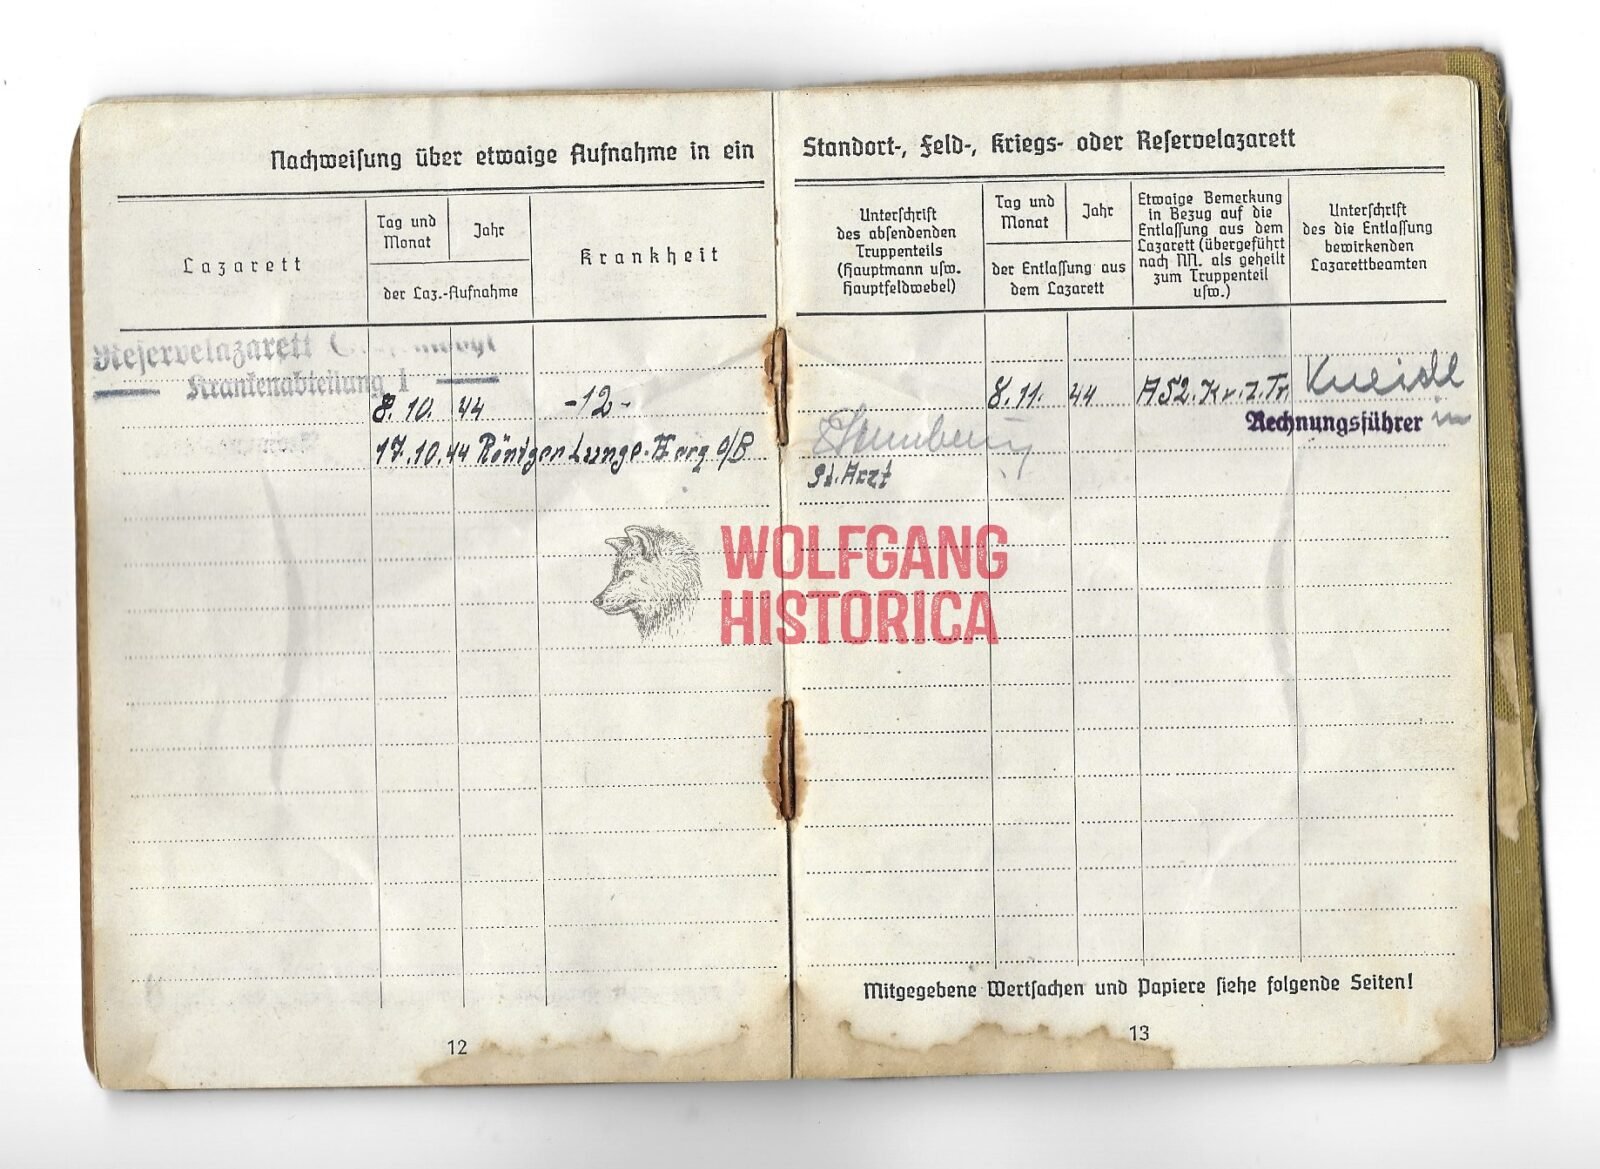 Nachweisung über etwaige Aufnahme in ein
Lazarett
Tag und Monat
Jahr
der Laz.-Aufnahme
Krankheit
Reservelazarett
Krankenabteilung I
8.10. 44 -12-
17.10.44 Röntgen Lunge-Herz o/B
12
Standort-, Feld-, Kriegs- oder Reservelazarett
Unterschrift
des absendenden
Truppenteils
(Hauptmann usw.
Hauptfeldwebel)
Tag und Monat
Jahr
der Entlassung aus
dem Lazarett
Etwaige Bemerkung
in Bezug auf die
Entlassung aus dem
Lazarett (übergeführt
nach NN. als geheilt
zum Truppenteil
usw.)
Unterschrift
des die Entlassung
bewirkenden
Lazarettbeamten
8.11. 44 A52. Kv. z. Tr.
Rechnungsführer
St. Arzt
WOLFGANG
HISTORICA
Mitgegebene Wertsachen und Papiere siehe folgende Seiten!
13